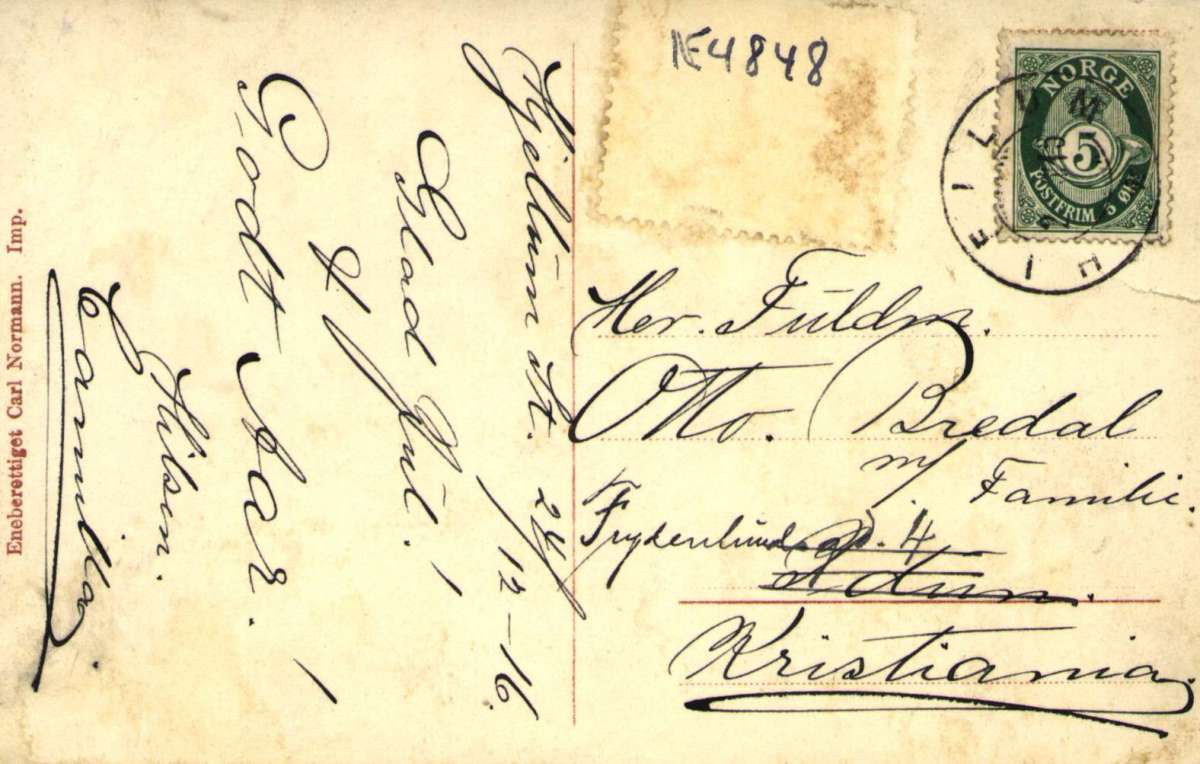 Hjellum St. 24/12-16.
Glad Jul!
&
Godt Aar!
Hilsen.
Camilla.
Eneberettiget Carl Normann. Imp.
NE4848
NORGE
5
POSTFRIM 5 ØRE
Her. Fuldm.
Otto. Bredal
m/ Familie.
Frydenlund
Kristiania.